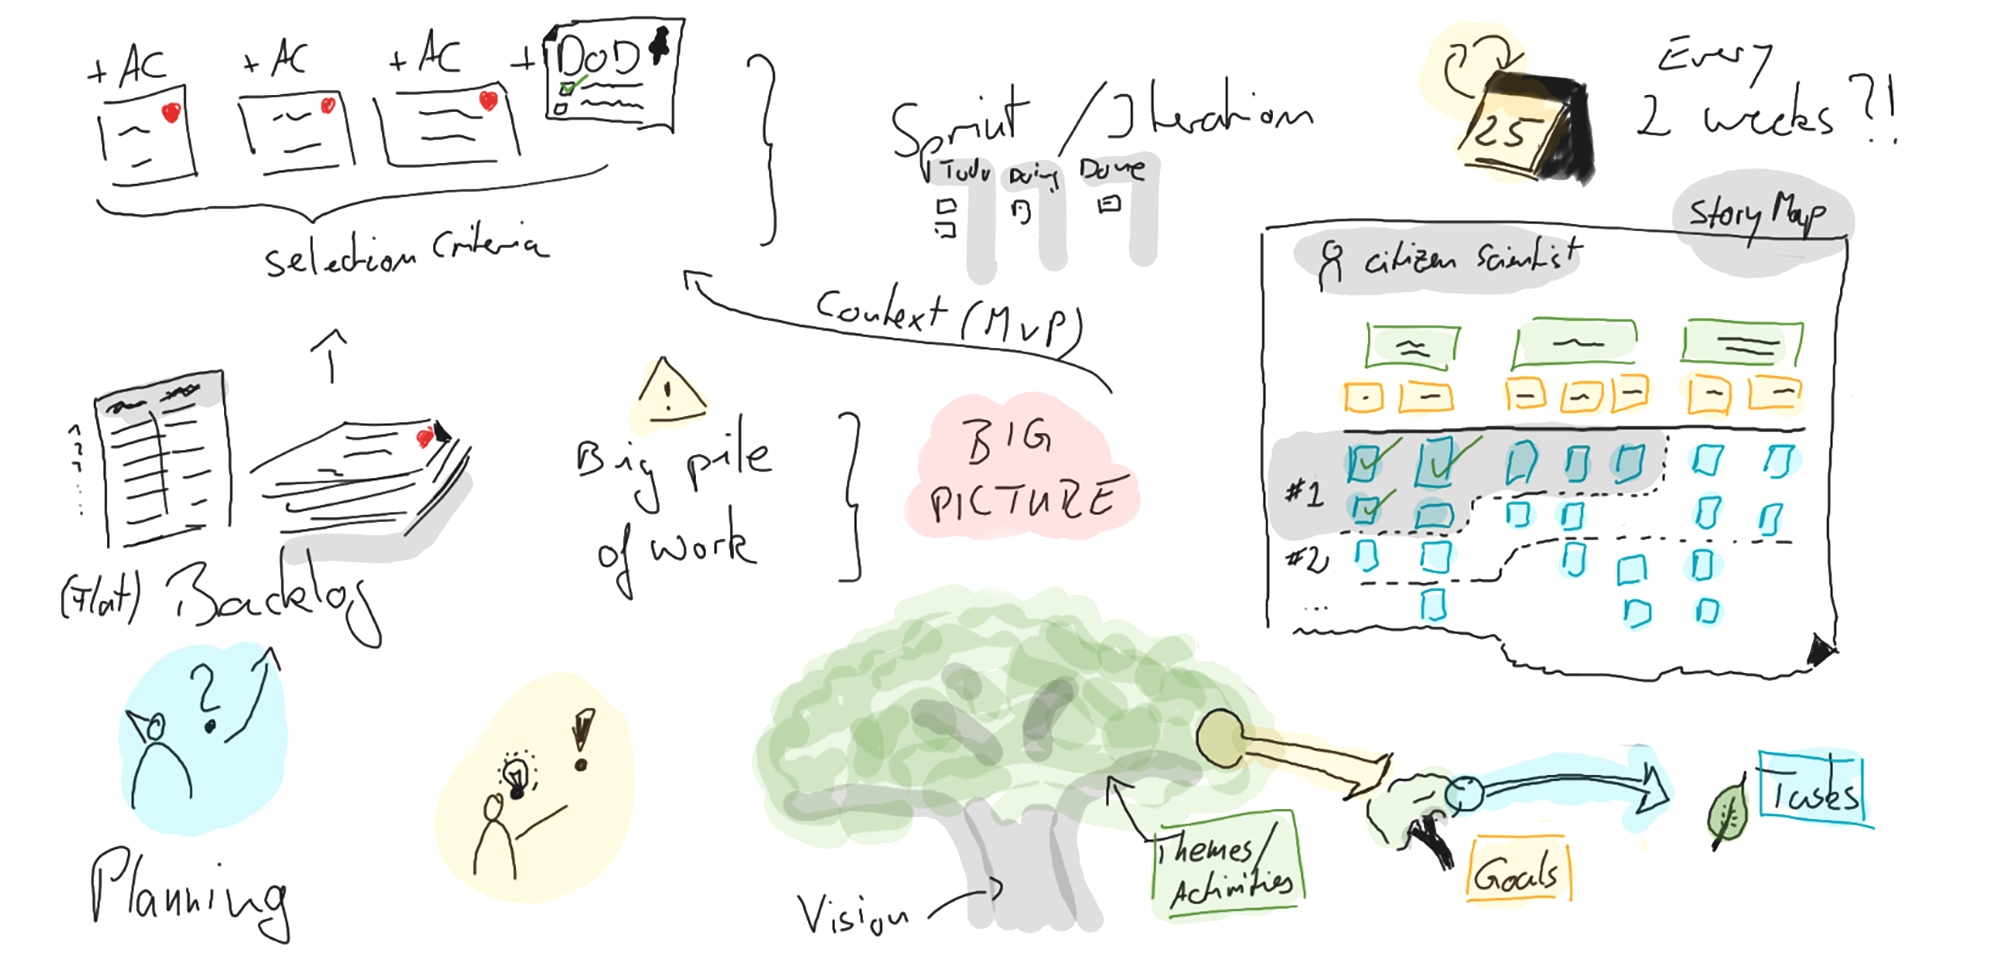 + AC
+ AC
+ AC
+
DoD
Selection Criteria
Sprint / Iteration
Todo
Doing
Done
25
Every
2 weeks ?!
Story Map
Citizen Scientist
#1
#2
...
Context (MVP)
!
Big pile
of work
BIG
PICTURE
(Flat) Backlog
?
!
Planning
Vision
Themes/
Activities
Goals
Tasks